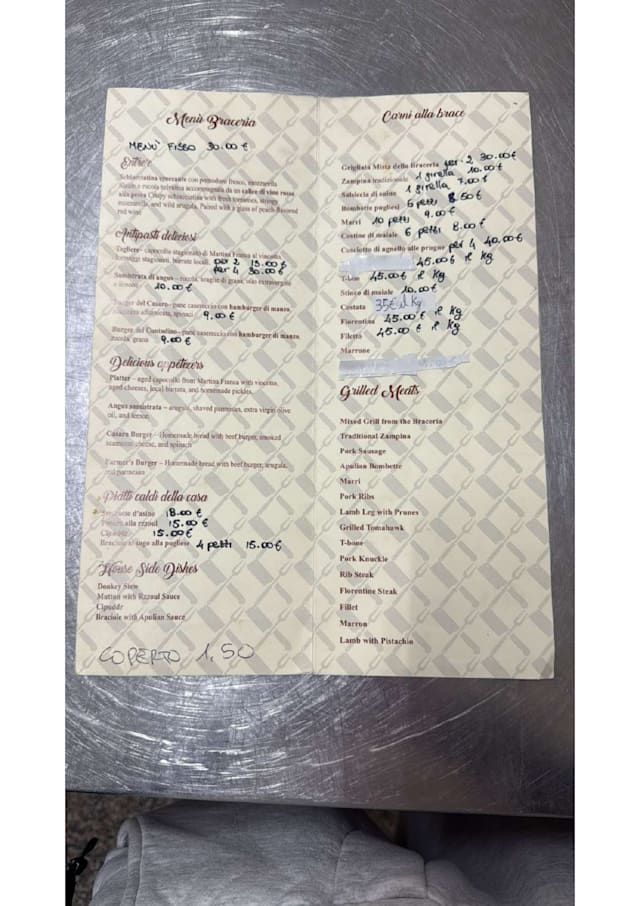 Menù Braceria
MENU' FISSO 30.00 €
Entrèe
Schiacciatina croccante con pomodoro fresco, mozzarella
filante e rucola selvatica accompagnata da un calice di vino rosso
alla pesca Crispy schiacciatina with fresh tomatoes, stringy
mozzarella, and wild arugula. Paired with a glass of peach-flavored
red wine
Antipasti deliziosi
Tagliere - capocollo stagionato di Martina Franca al vincotto,
formaggi stagionati, burrate locali, per 2 15.00 €
per 4 30.00 €
Samistrata di angus - rucola, scaglie di grana, olio extravergine
e limone 10.00 €
Burger del Casaro - pane casereccio con hamburger di manzo,
scamorza affumicata, spinaci 9.00 €
Burger del Contadino - pane casereccio con hamburger di manzo,
rucola, grana 9.00 €
Delicious appetizers
Platter – aged capocollo from Martina Franca with vincotto,
aged cheeses, local burrata, and homemade pickles.
Angus samistrata – arugula, shaved parmesan, extra virgin olive
oil, and lemon
Casaro Burger – Homemade bread with beef burger, smoked
scamorza cheese, and spinach
Farmer's Burger – Homemade bread with beef burger, arugula,
and parmesan
Piatti caldi della casa
d'asino 18.00 €
alla 15.00 €
15.00 €
Braciole al sugo alla pugliese 4 pezzi 15.00 €
House Side Dishes
Donkey Stew
Mutton with Rzzoul Sauce
Cipuddr
Braciole with Apulian Sauce
COPERTO 1,50
Carni alla brace
Grigliata Mista della Braceria per 2 30.00 €
Zampina tradizionale 1 girella 10.00 €
Salsiccia di suino 1 girella 7.00 €
Bombette pugliesi 5 pezzi 8.50 €
Marri 10 pezzi 9.00 €
Costine di maiale 6 pezzi 8.00 €
Cosciotto di agnello alle prugne per 4 40.00 €
45.00 € il kg
T-bon 45.00 € il kg
Stinco di maiale 10.00 €
Costata 35€ il Kg
Fiorentina 45.00 € il kg
Filetto 45.00 € il kg
Marrone
Grilled Meats
Mixed Grill from the Braceria
Traditional Zampina
Pork Sausage
Apulian Bombette
Marri
Pork Ribs
Lamb Leg with Prunes
Grilled Tomahawk
T-bone
Pork Knuckle
Rib Steak
Florentine Steak
Fillet
Marron
Lamb with Pistachio